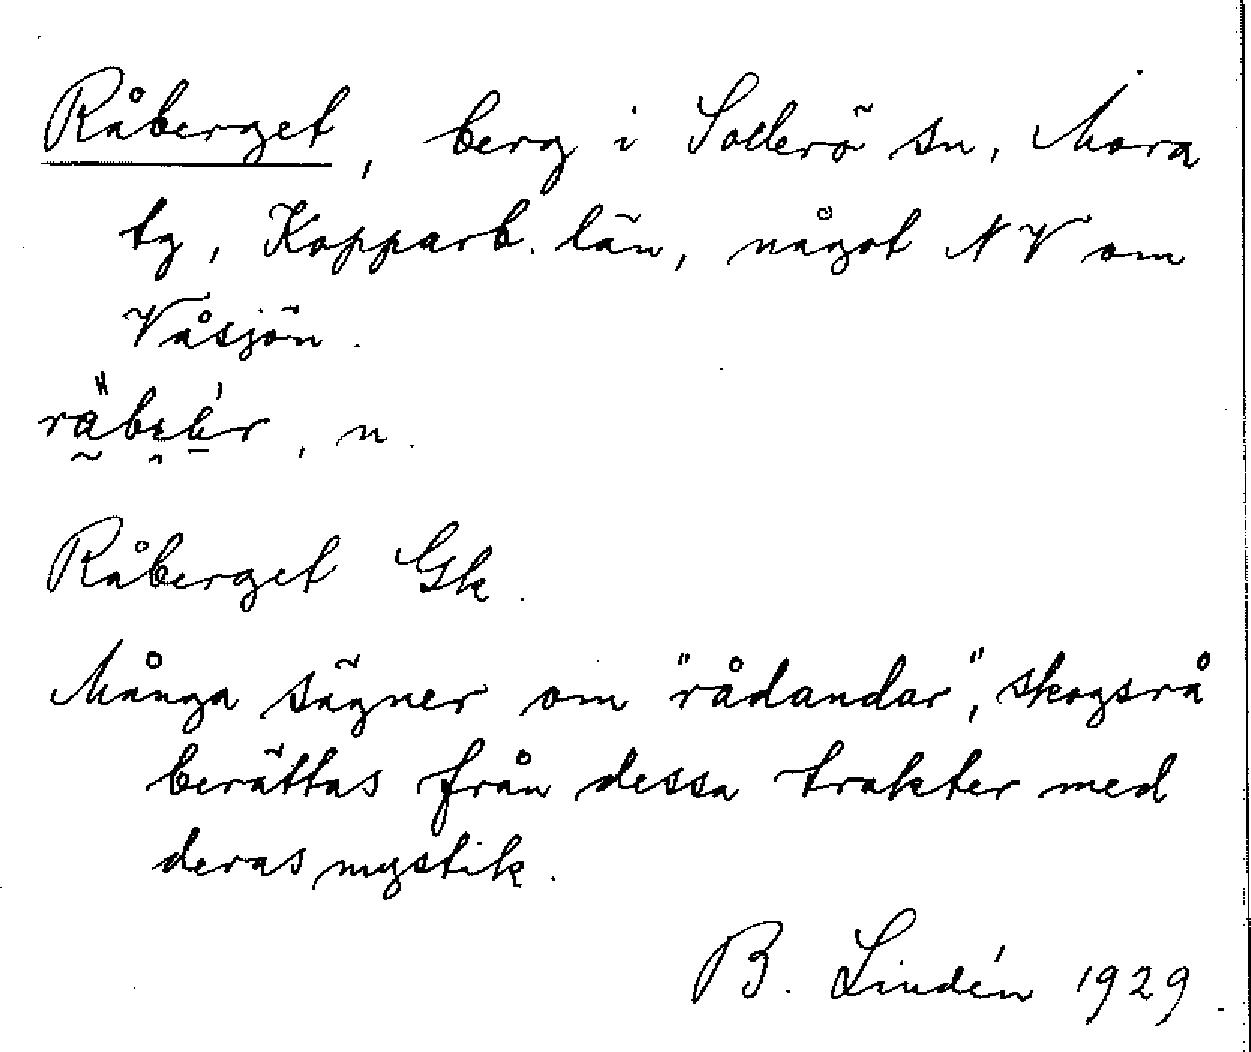 Råberget, berg i Sollerö sn, Mora
tg, Kopparb. län, något NV om
Våsjön.
, n.
Råberget Gk.
Många sägner om "rådandar", skogsrå
berättas från dessa trakter med
deras mystik.
B. Lindén 1929.